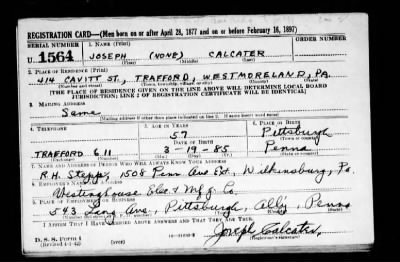 REGISTRATION CARD—(Men born on or after April 28, 1877 and on or before February 16, 1897)
SERIAL NUMBER 1. NAME (Print)
U 1564 JOSEPH (NONE) CALCATER
(First) (Middle) (Last)
2. PLACE OF RESIDENCE (Print)
414 CAVITT ST., TRAFFORD, WESTMORELAND, PA.
(Number and street) (Town, township, village, or city) (County) (State)
[THE PLACE OF RESIDENCE GIVEN ON THE LINE ABOVE WILL DETERMINE LOCAL BOARD
JURISDICTION; LINE 2 OF REGISTRATION CERTIFICATE WILL BE IDENTICAL]
3. MAILING ADDRESS
Same
[Mailing address if other than place indicated on line 2. If same insert word same]
4. TELEPHONE 5. AGE IN YEARS 6. PLACE OF BIRTH
57 Pittsburgh
DATE OF BIRTH (Town or county)
TRAFFORD 611 3-19-85 Penna
(Mo.) (Day) (Yr.) (State or country)
7. NAME AND ADDRESS OF PERSON WHO WILL ALWAYS KNOW YOUR ADDRESS
R.H. 1508 Penn Ave Ext, Wilkinsburg, Pa.
8. EMPLOYER'S NAME AND ADDRESS
Westinghouse Elec & Mfg Co.
9. PLACE OF EMPLOYMENT OR BUSINESS
543 Ave, Pittsburgh, Penna
(Number and street or R. F. D. number) (Town) (County) (State)
I AFFIRM THAT I HAVE VERIFIED ABOVE ANSWERS AND THAT THEY ARE TRUE.
D. S. S. FORM 1
(Revised 4-1-42) (over) Joseph Calcater
(Registrant's signature)